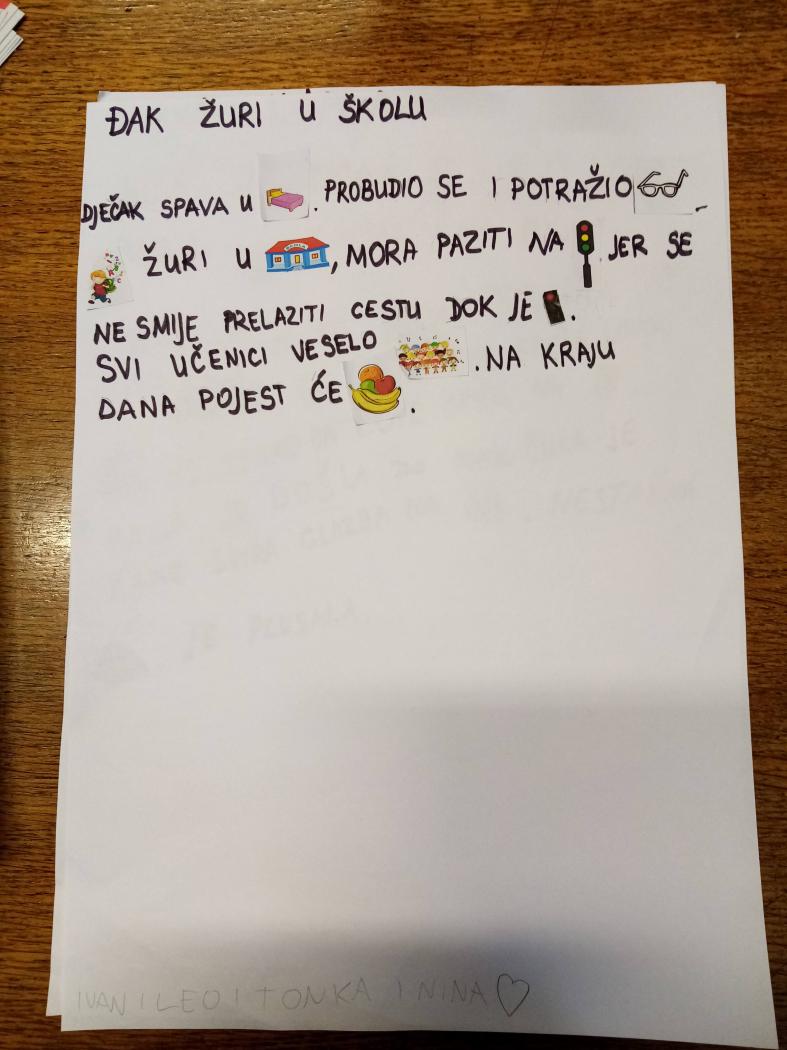 ĐAK ŽURI U ŠKOLU
DJEČAK SPAVA U . PROBUDIO SE I POTRAŽIO
ŽURI U , MORA PAZITI NA JER SE
NE SMIJE PRELAZITI CESTU DOK JE .
SVI UČENICI VESELO . NA KRAJU
DANA POJEST ĆE .
IVAN I LEO I TONKA I NINA